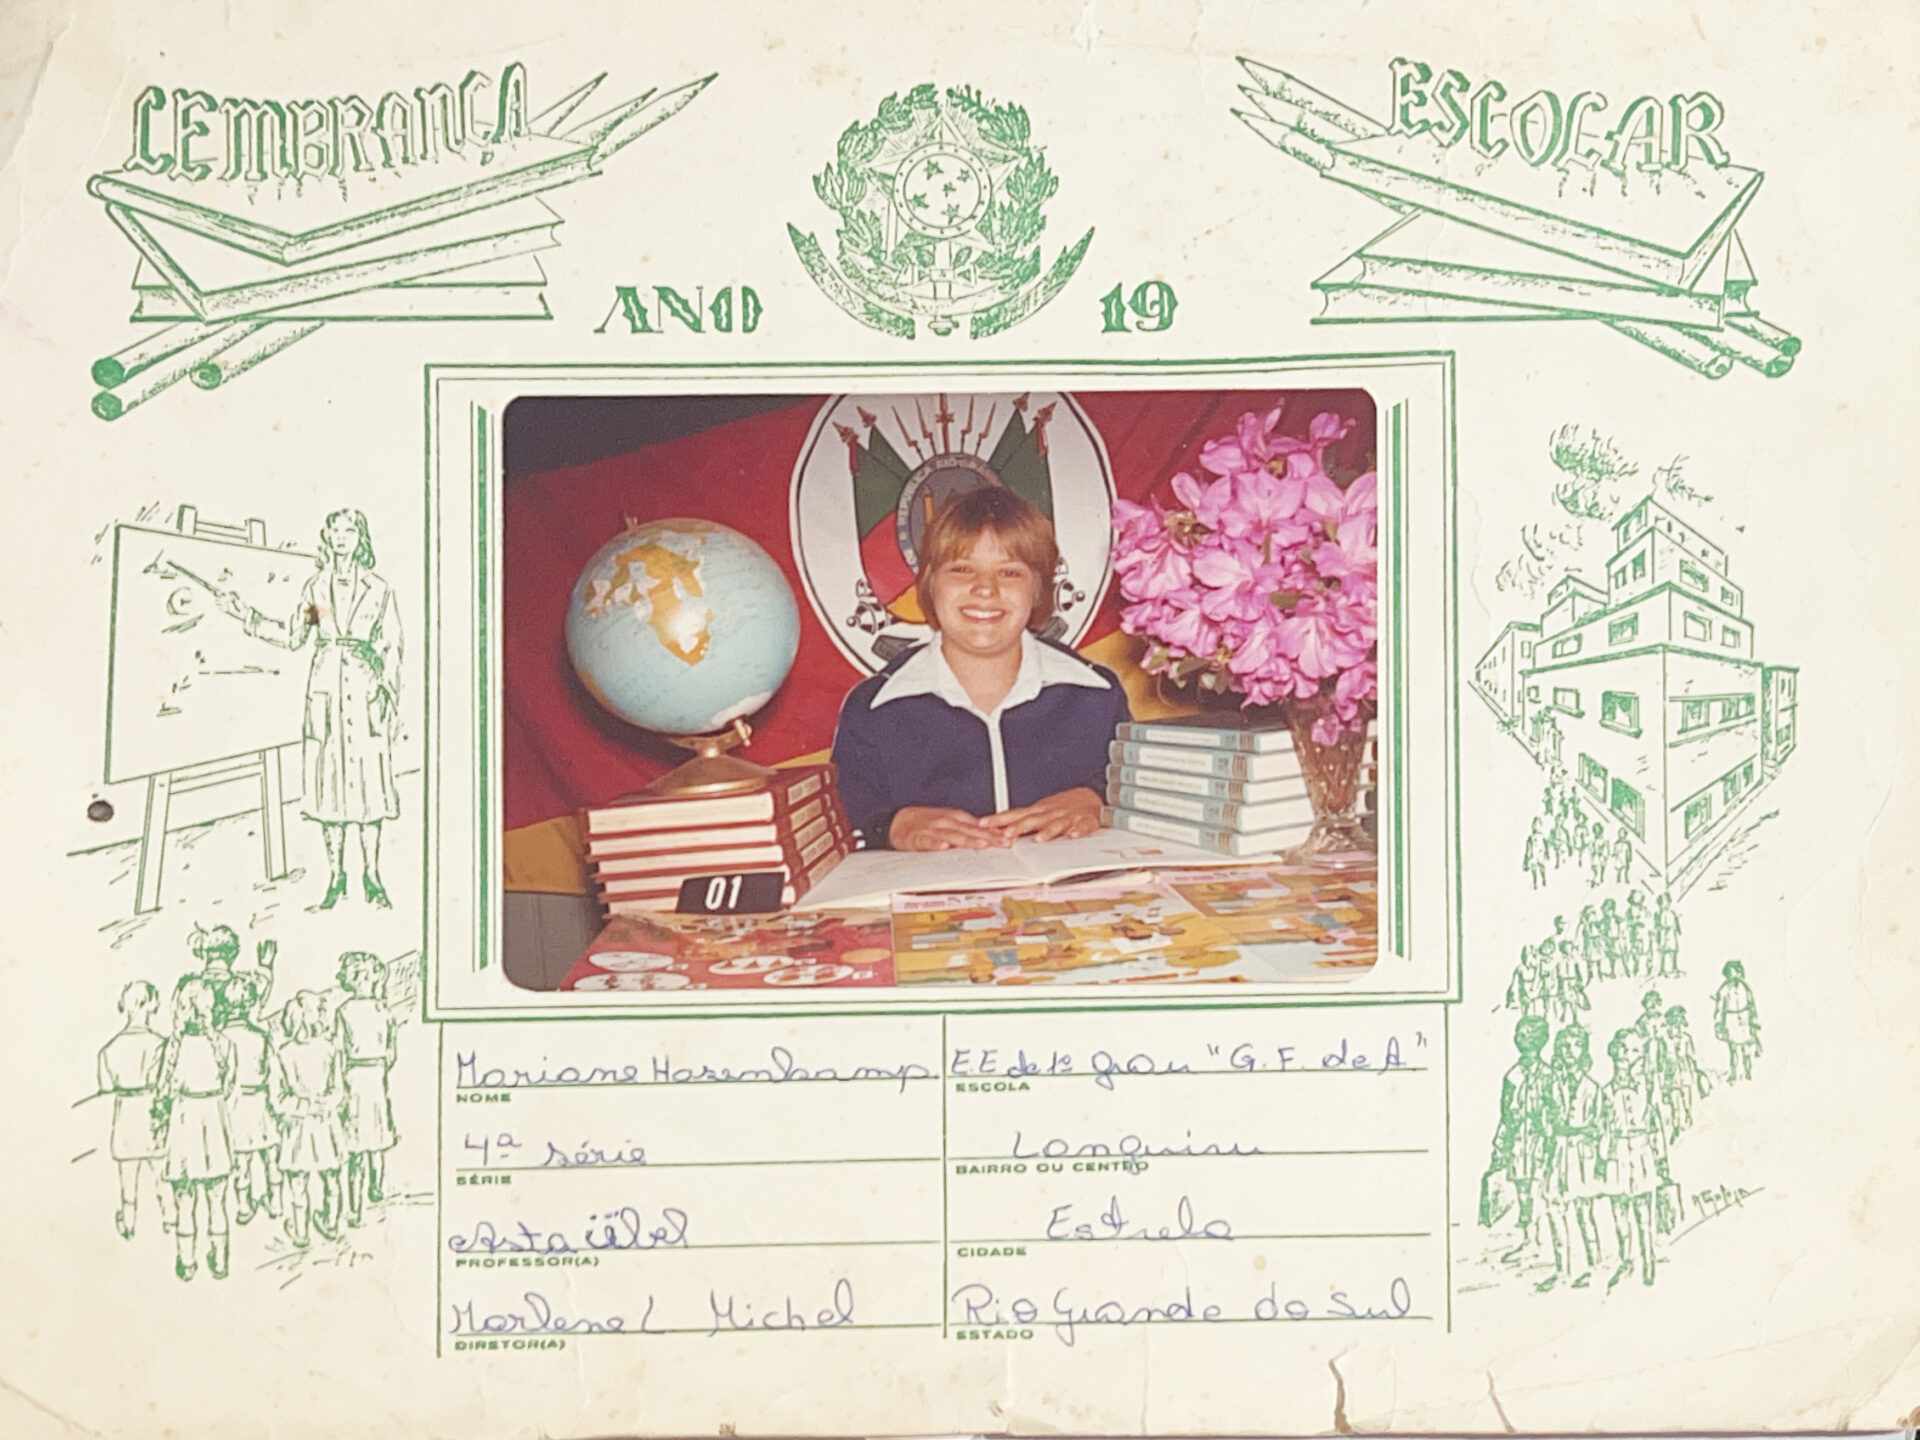 LEMBRANÇA ESCOLAR
ANO 19
01
Mariane Hasenkamp
NOME
E.E de 1º grau "G. F. de A"
ESCOLA
4ª série
SÉRIE
Languiru
BAIRRO OU CENTRO
Asta
PROFESSOR(A)
Estrela
CIDADE
Marlene L Michel
DIRETOR(A)
Rio Grande do Sul
ESTADO